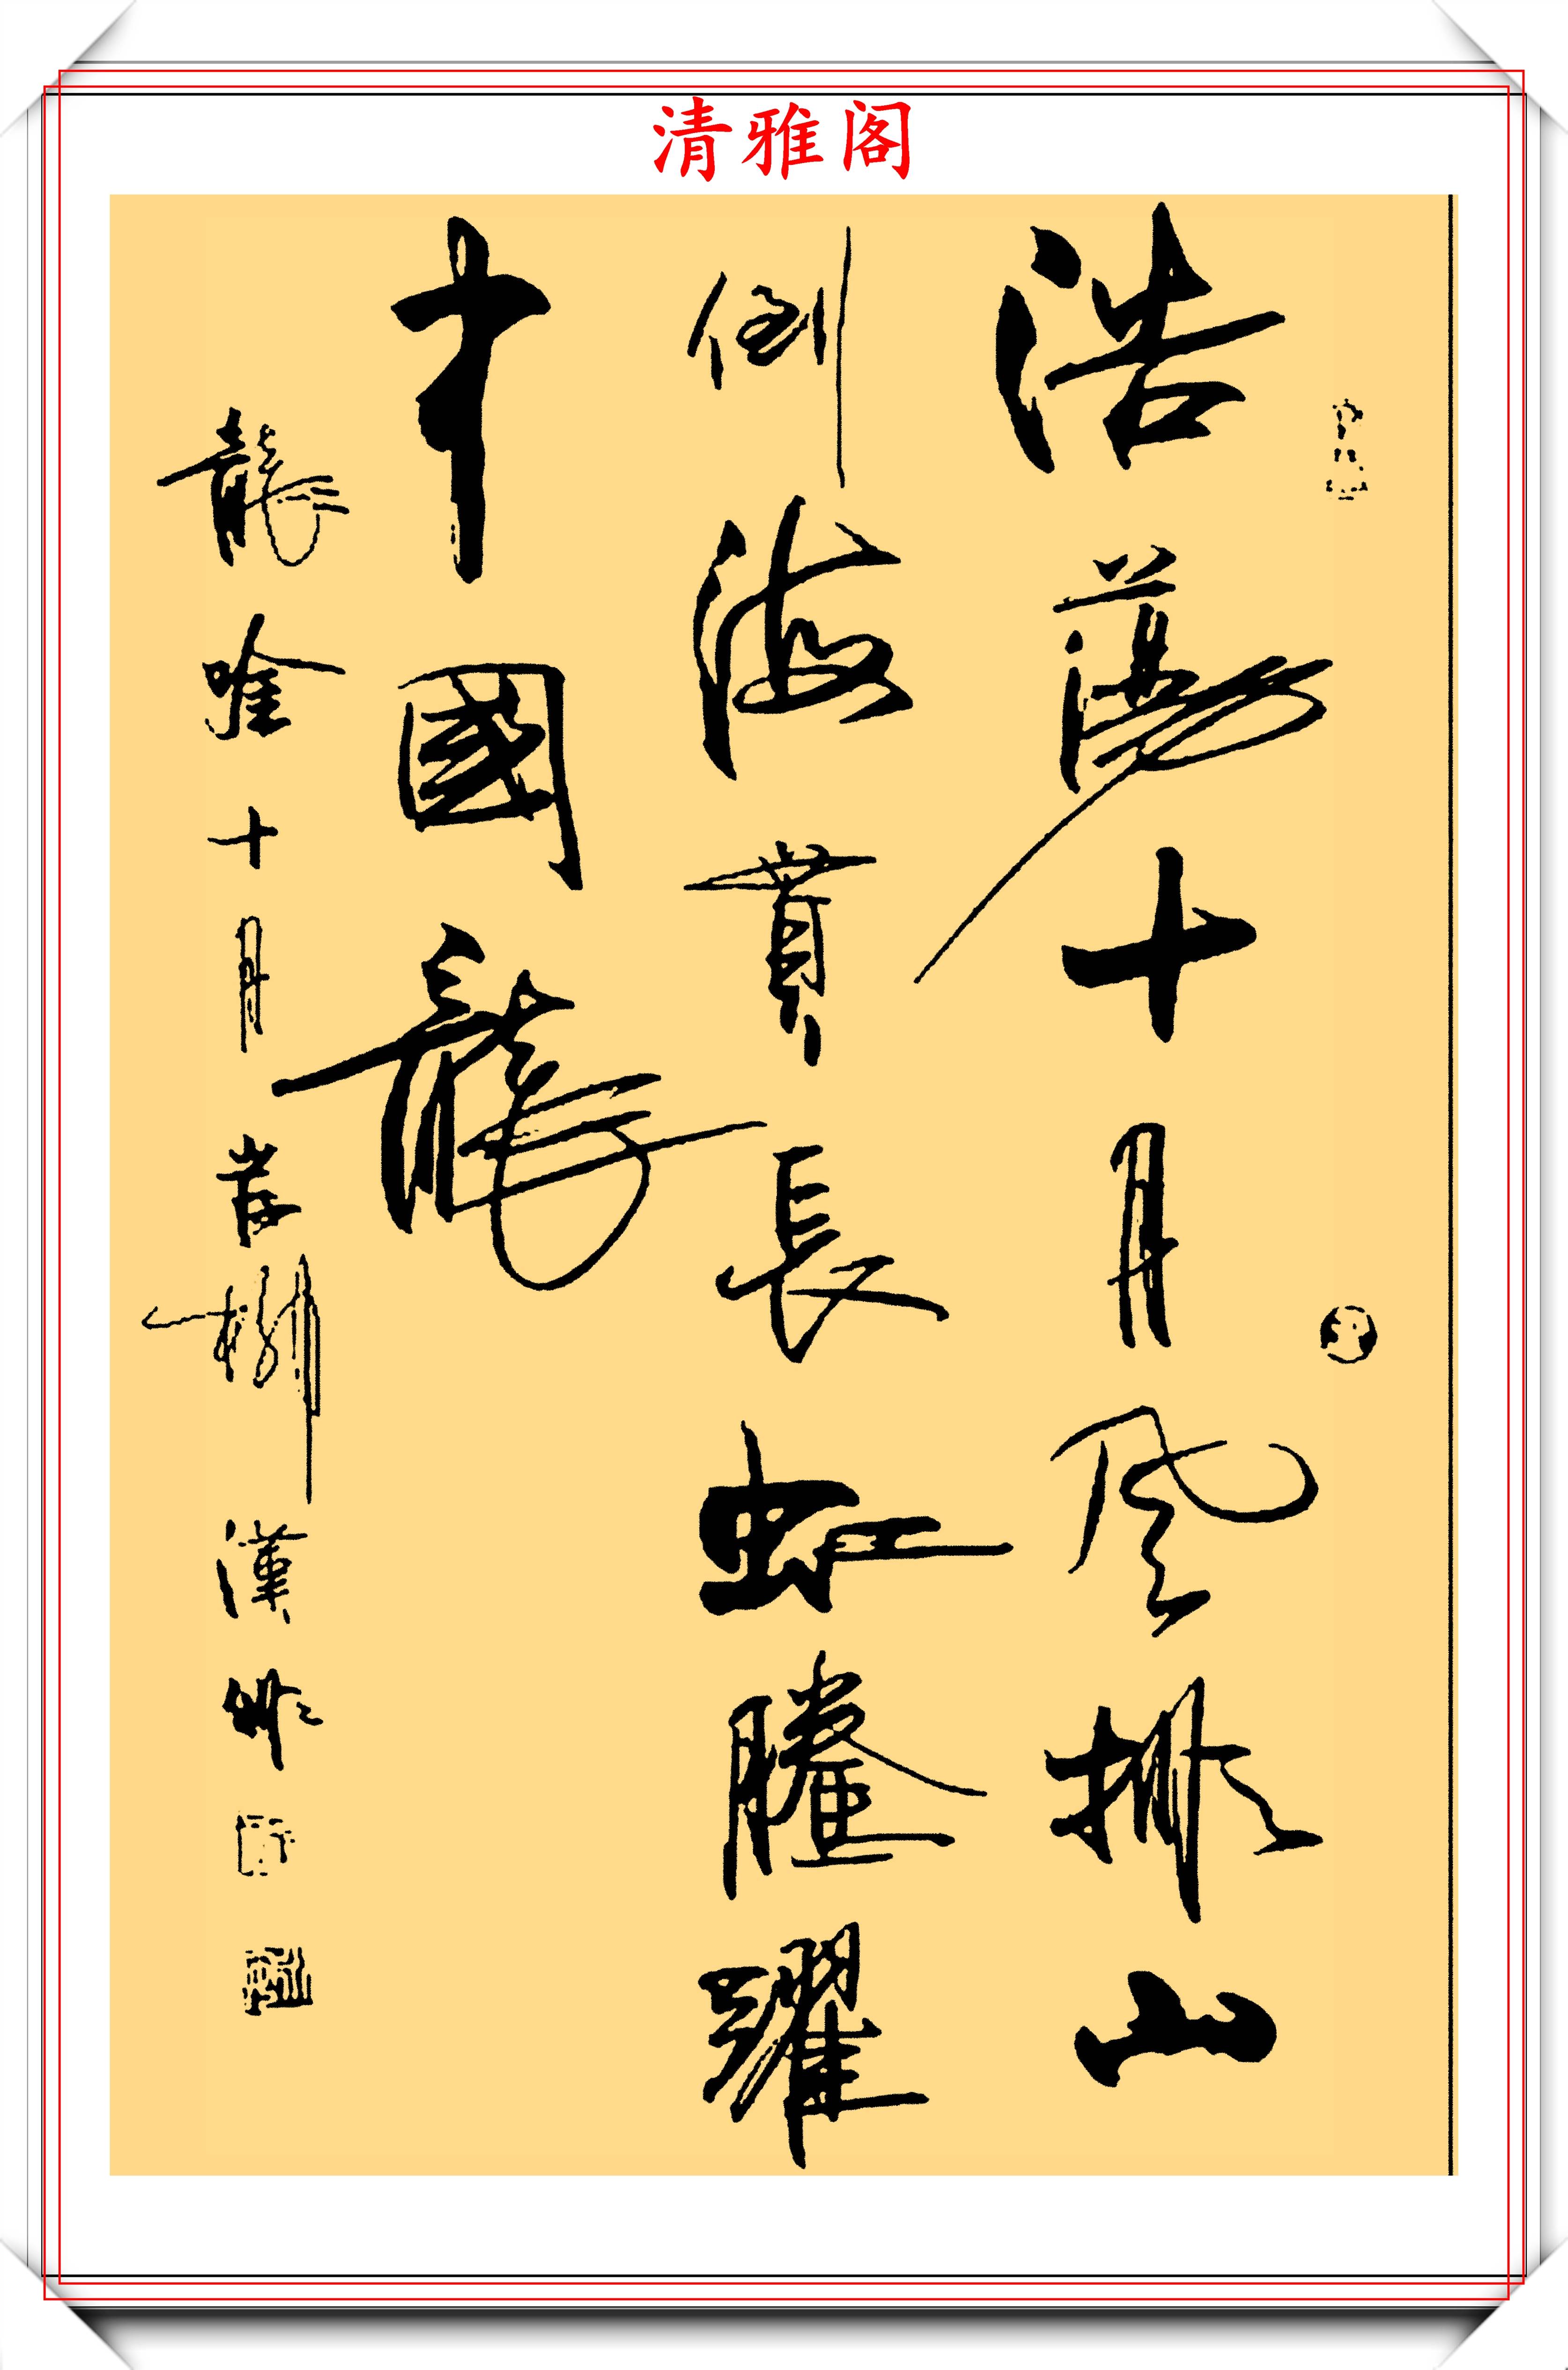 清雅阁
浩蕩十月风排山
倒海貫長虹騰躍
中國龍
龍吟十月岩柳漢